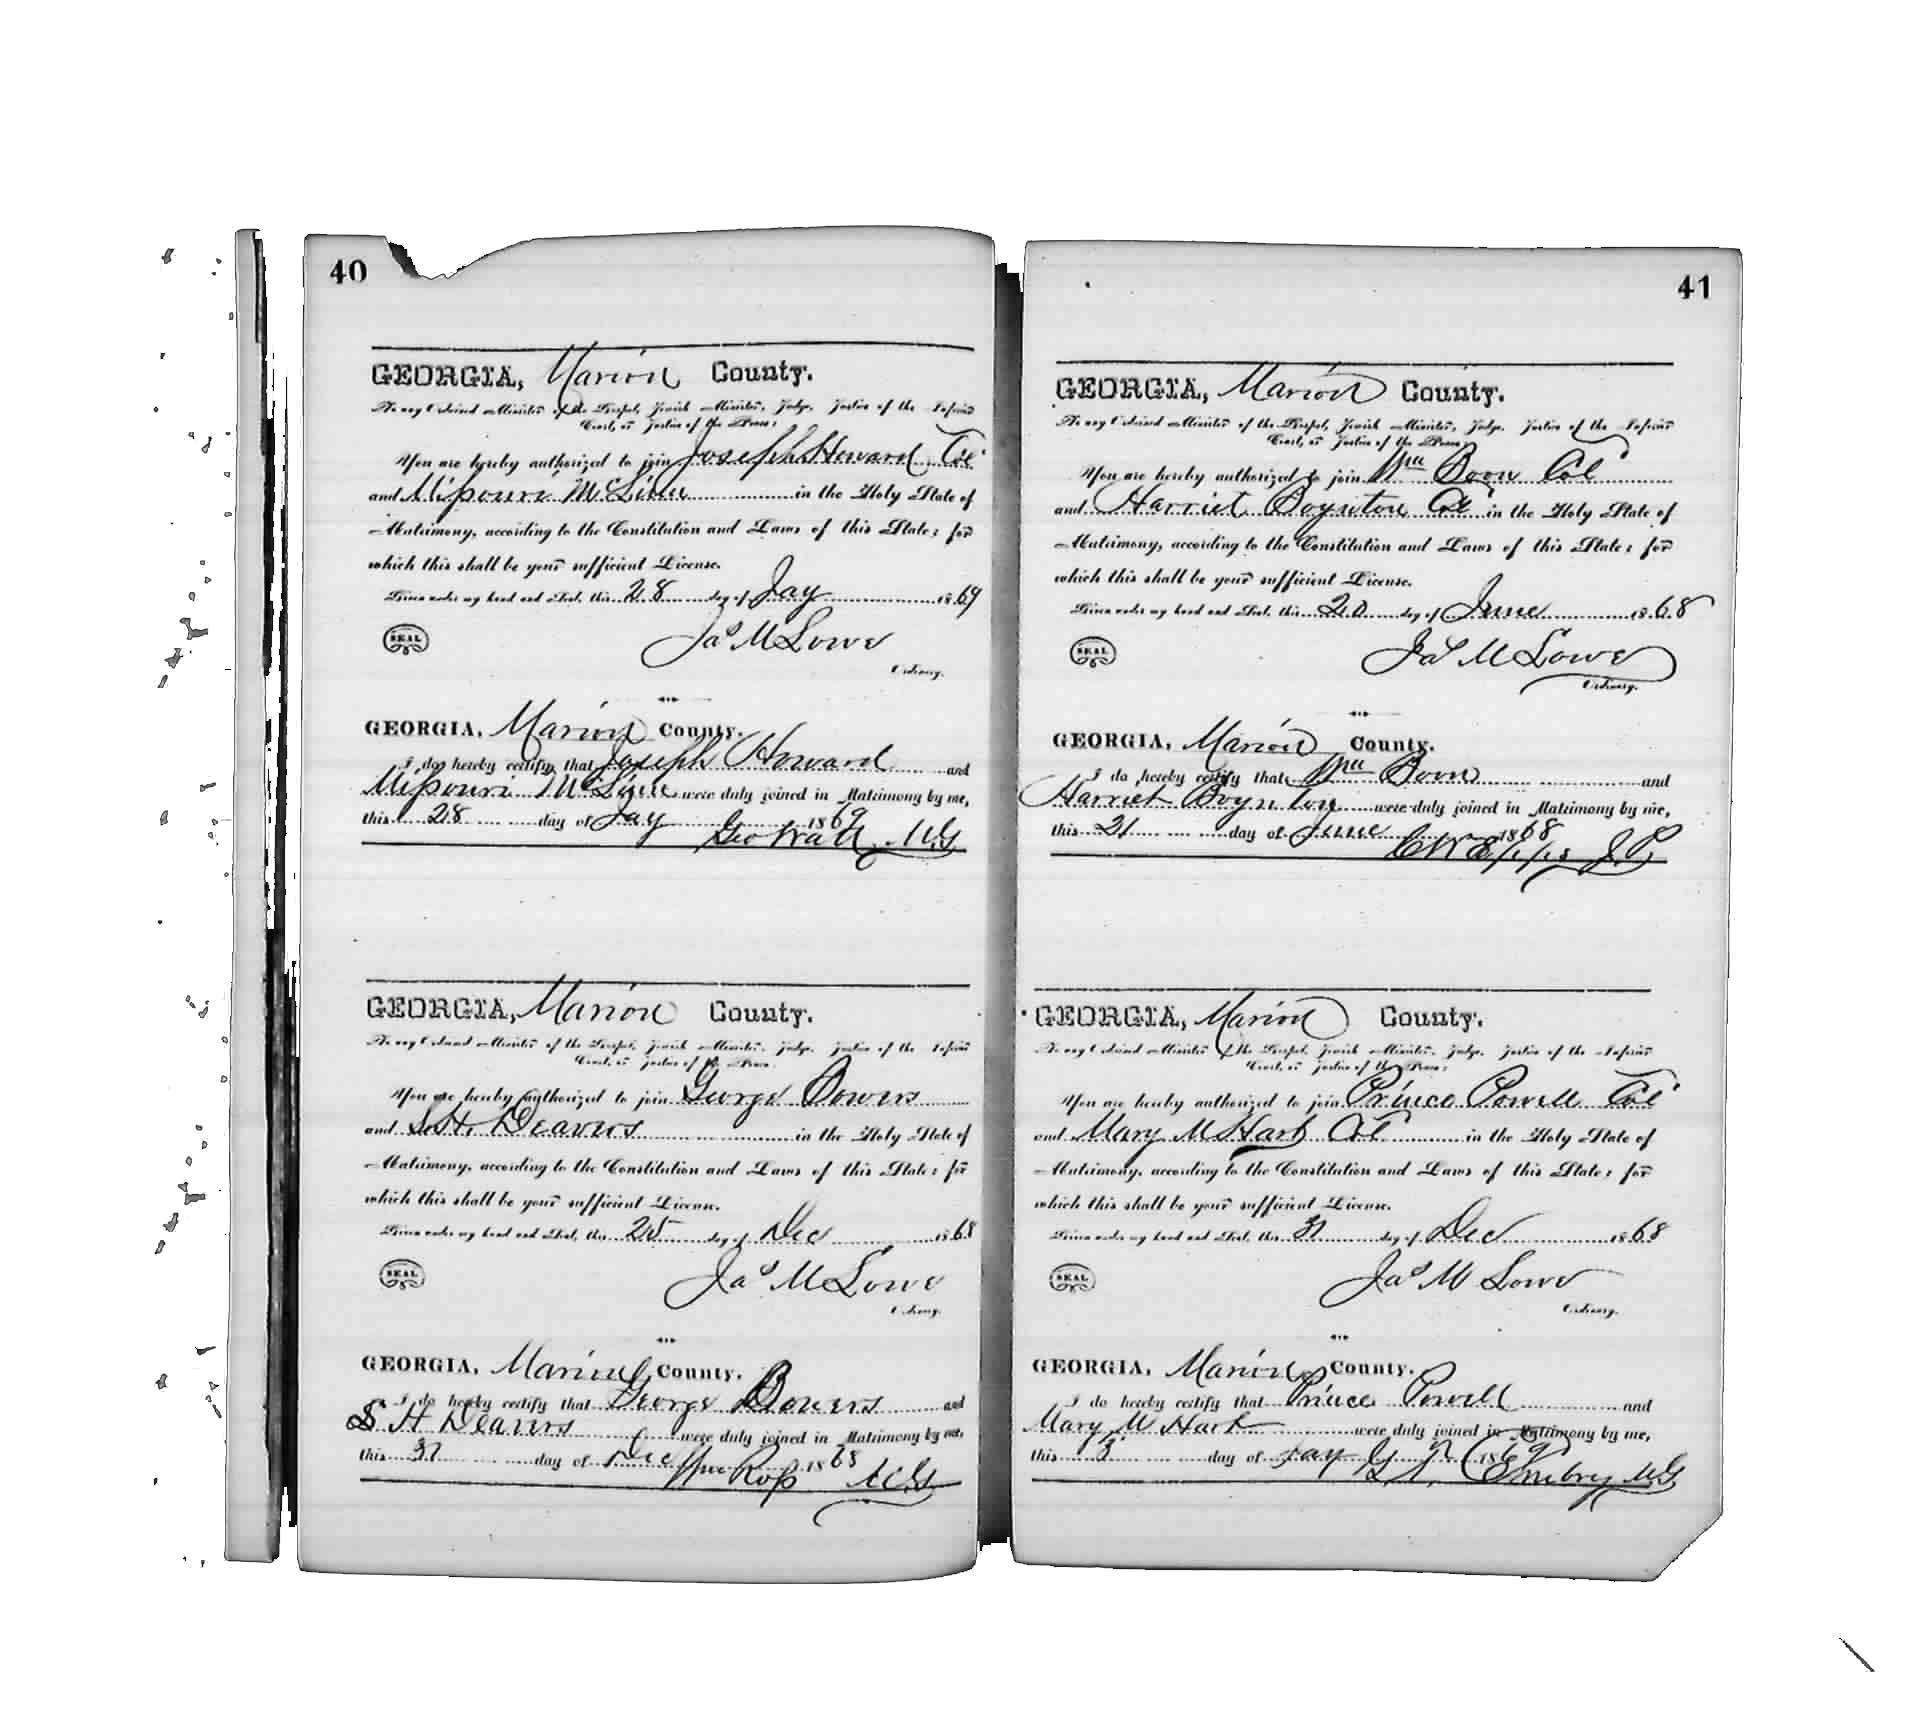 40
GEORGIA, Marion County.
To any Ordained Minister of the Gospel, Jewish Minister, Judge, Justice of the Inferior
Court, or Justice of the Peace:
You are hereby authorized to join Joseph Howard Col
and Missouri in the Holy State of
Matrimony, according to the Constitution and Laws of this State; for
which this shall be your sufficient License.
Given under my hand and Seal, this 28 day of Jay 1869
SEAL
Jas M Lowe
Ordinary.
GEORGIA, Marion County.
I do hereby certify that Joseph Howard and
Missouri were duly joined in Matrimony by me,
this 28 day of Jay 1869
Geo M.G
GEORGIA, Marion County.
To any Ordained Minister of the Gospel, Jewish Minister, Judge, Justice of the Inferior
Court, or Justice of the Peace.
You are hereby authorized to join George Bowers
and S. H. Deavers in the Holy State of
Matrimony, according to the Constitution and Laws of this State; for
which this shall be your sufficient License.
Given under my hand and Seal, this 25 day of Dec 1868
SEAL
Jas M Lowe
Ordinary.
GEORGIA, Marion County.
I do hereby certify that George Bowers and
S H Deavers were duly joined in Matrimony by me,
this 31 day of Dec 1868
Wm Ross M.G
41
GEORGIA, Marion County.
To any Ordained Minister of the Gospel, Jewish Minister, Judge, Justice of the Inferior
Court, or Justice of the Peace:
You are hereby authorized to join Wm Boon Col
and Harriet Boynton Col in the Holy State of
Matrimony, according to the Constitution and Laws of this State; for
which this shall be your sufficient License.
Given under my hand and Seal, this 20 day of June 1868
SEAL
Jas M Lowe
Ordinary.
GEORGIA, Marion County.
I do hereby certify that Wm Boon and
Harriet Boynton were duly joined in Matrimony by me,
this 21 day of June 1868
C W Epps J.P.
GEORGIA, Marion County.
To any Ordained Minister of the Gospel, Jewish Minister, Judge, Justice of the Inferior
Court, or Justice of the Peace:
You are hereby authorized to join Prince Powell Col
and Mary M Hart Col in the Holy State of
Matrimony, according to the Constitution and Laws of this State; for
which this shall be your sufficient License.
Given under my hand and Seal, this 31 day of Dec 1868
SEAL
Jas M Lowe
Ordinary.
GEORGIA, Marion County.
I do hereby certify that Prince Powell and
Mary M Hart were duly joined in Matrimony by me,
this 3 day of Jay 1869
Embry M.G.